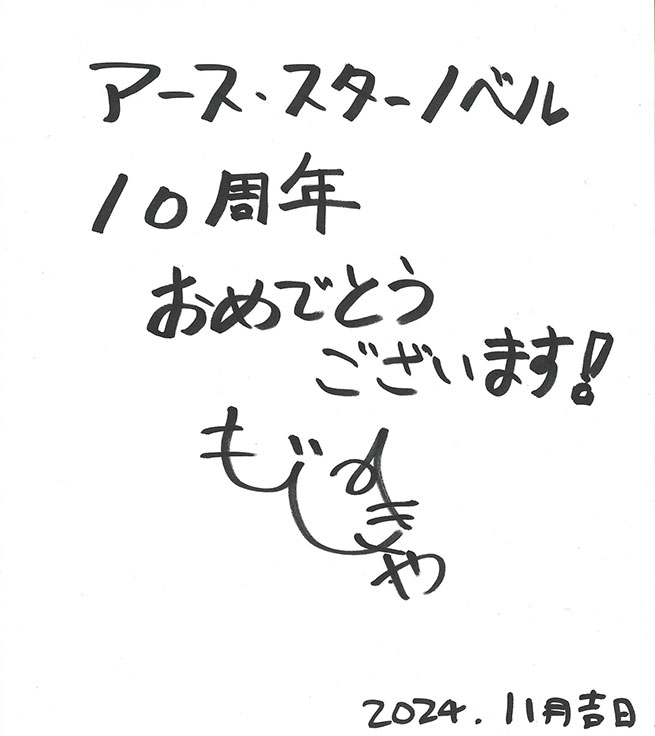 アース・スターノベル
10周年
おめでとう
ございます!
もじ
や
2024.11月吉日